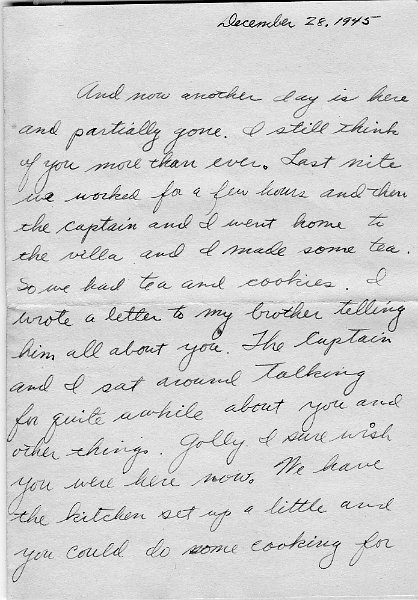 December 28, 1945
And now another day is here
and partially gone. I still think
of you more than ever. Last nite
we worked for a few hours and then
the captain and I went home to
the villa and I made some tea.
So we had tea and cookies. I
wrote a letter to my brother telling
him all about you. The Captain
and I sat around talking
for quite awhile about you and
other things. Golly I sure wish
you were here now. We have
the kitchen set up a little and
you could do some cooking for